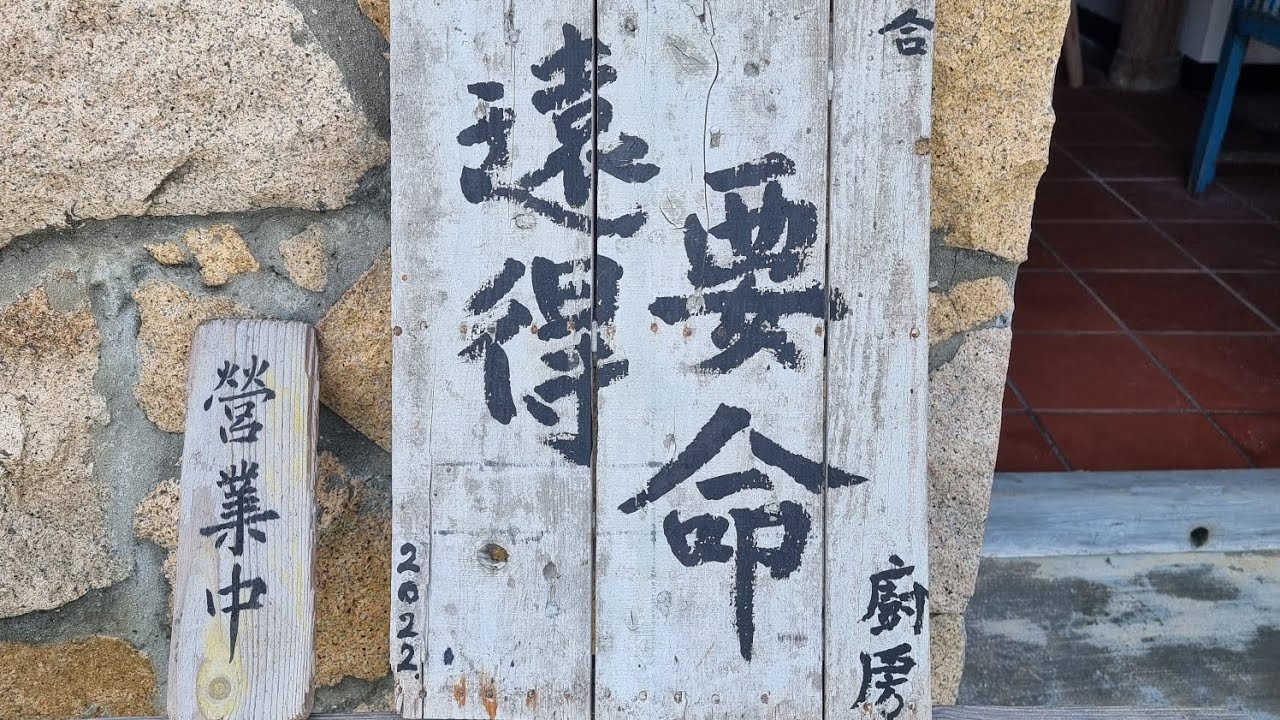 合
遠得
要命
廚房
2022.
營業中